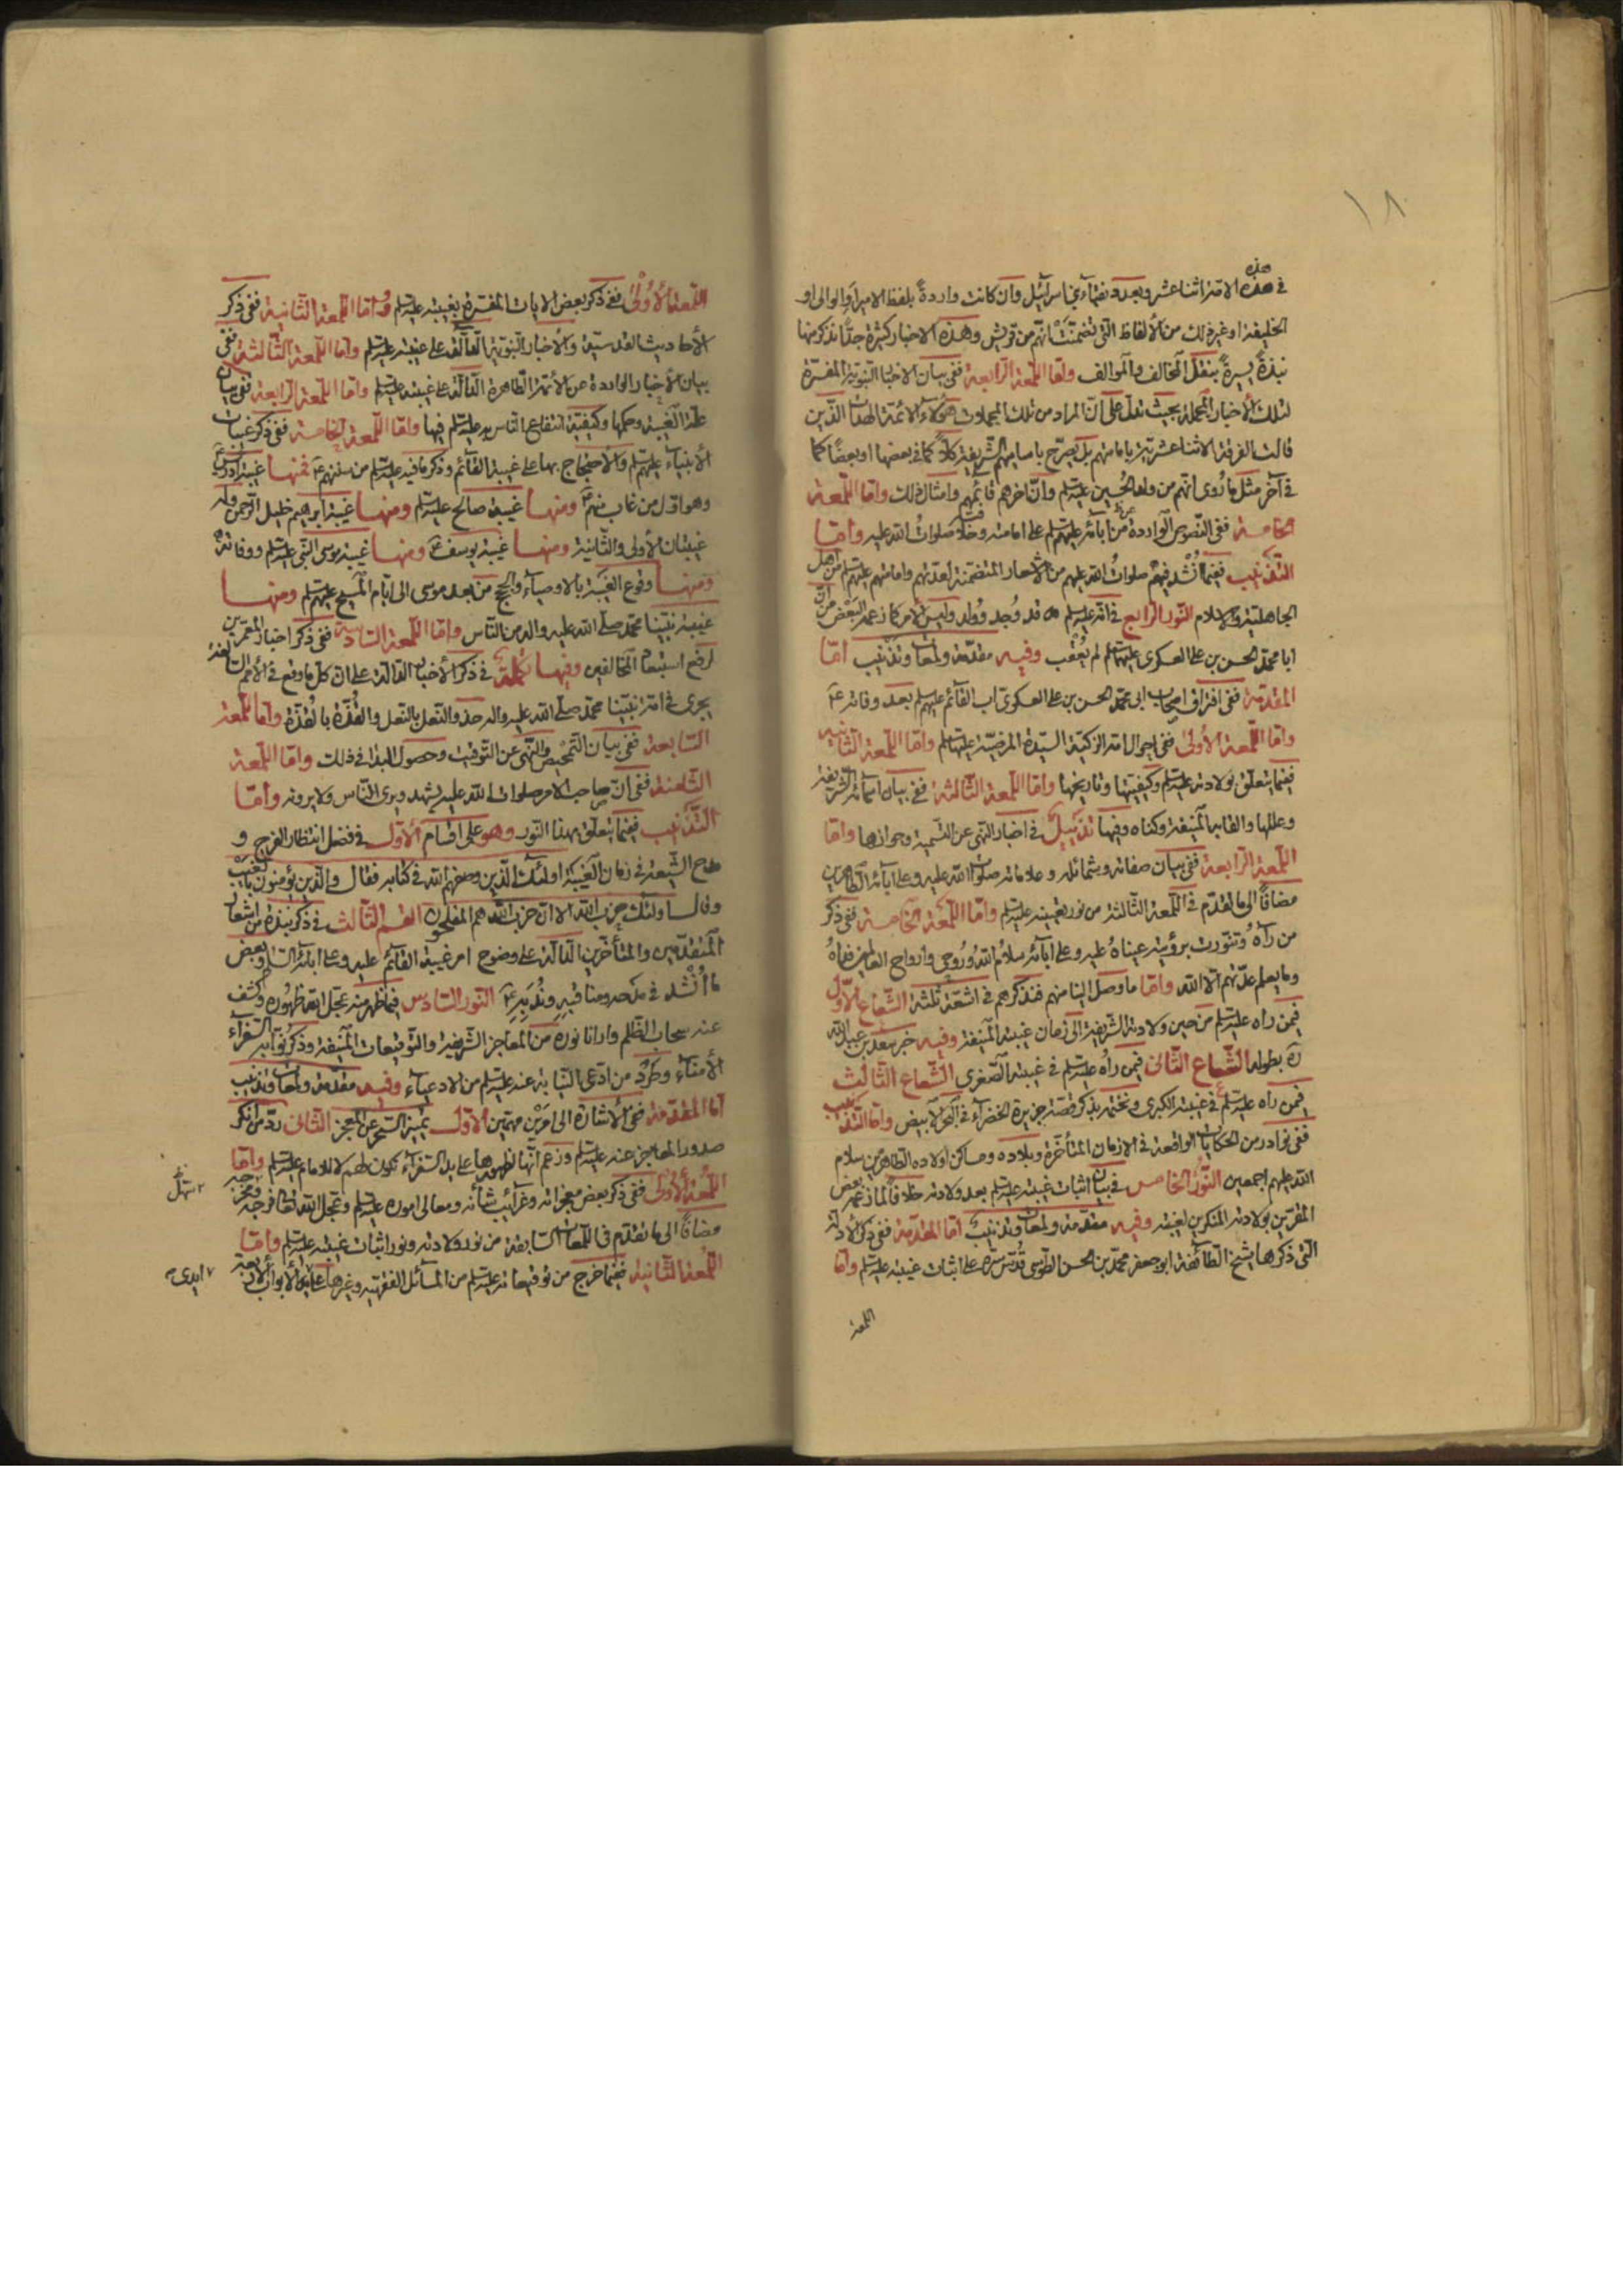 ١٨
هذه
في هذه الامة اثنا عشر وبعدد نقباء بني اسرائيل وان كانت واردةً بلفظ الامير او الوالى او
الخليفة او غير ذلك من الألفاظ التى تضمنت انّهم من قريش وهذه الاخبار كثيرة جدًّا نذكر منها
نبذةً يسيرةً بنقل المخالف والموالف وامّا اللّمعة الرّابعة ففى بيان الاخبار النّبوية المفسّرة
لتلك الأخبار المجملة بحيث تدلّ على انّ المراد من تلك المجملات هؤلاء الائمّة الهداة الّذين
قالت الفرقة الاثنا عشريّة بامامتهم بل يصرّح باساميهم الشّريفة كلاًّ كما فى بعضها او بعضًا كما
فى آخر مثل ما رُوى انّهم من ولد الحسين عليه السّلم وانّ اخرهم قائمهم وامثال ذلك وامّا اللّمعة
الخامسة ففى النّصوص الواردة عن آبائه عليهم السّلم على امامته وخلافته صلوات الله عليه وامّا
التّذنيب ففيما اُنشد فيهم صلوات الله عليهم من الاشعار المتضمّنة لعدّتهم وامامتهم عليهم السّلم من اهل
الجاهلية والاسلام النّور الرّابع فى انّه عليه السّلم قد وُجد ووُلد وليس الامر كما زعمه البعض من انّ
ابا محمّد الحسن بن على العسكرى عليهما السّلم لم يُعقب وفيه مقدّمة ولمعات وتذنيب امّا
المقدّمة ففى افتراق اصحاب ابى محمّد الحسن بن على العسكرى اب القائم عليهم السّلم بعد وفاته ع
وامّا اللّمعة الأولى ففى احوال امّه الزّكيّة السّيّدة المرضيّة عليها السّلم وامّا اللّمعة الثّانية
ففيما يتعلّق بولادته عليه السّلم وكيفيّتها وتاريخها وامّا اللّمعة الثّالثة ففى بيان اسمائه الشّريفة
وعللها والقابه المنيفة وكناه وفيها تذييل فى اخبار النّهى عن التّسمية وجوازها وامّا
اللّمعة الرّابعة ففى بيان صفاته وشمائله وعلاماته صلوات الله عليه وعلى آبائه الطّاهرين
مضافًا الى ما تقدّم فى اللّمعة الثّالثة من نور تعيينه عليه السّلم وامّا اللّمعة الخامسة ففى ذكر
من رآهُ وتنوّرت برؤيته عيناهُ عليه وعلى آبائه سلامُ الله وروحى وارواح العالمين فداهُ
وما يعلم عدّتهم الاّ الله وامّا ما وصل الينا منهم فنذكرهم فى اشعّة ثلثة الشّعاع الأوّل
فيمن راه عليه السّلم من حين ولادته الشّريفة الى زمان غيبته المنيفة وفيه خبر سعد بن عبد الله
ره بطوله الشّعاع الثّانى فيمن رآه عليه السّلم فى غيبته الصّغرى الشّعاع الثّالث
فيمن راه عليه السّلم فى غيبته الكبرى ونختم بذكر قصّة جزيرة الخضراء فى البحر الأبيض وامّا التّذنيب
ففى نوادر من الحكايات الواقعة فى الازمان المتأخّرة وبلاده ومساكن اولاده الطّاهرين سلام
الله عليهم اجمعين النّور الخامس فى بيان اثبات غيبته عليه السّلم بعد ولادته خلافًا لما زعم بعض
المقرّين بولادته المنكرين لغيبته وفيه مقدّمة ولمعات وتذنيب امّا المقدّمة ففى ذكر الادلّة
الّتى ذكرها شيخ الطّائفة ابو جعفر محمّد بن الحسن الطّوسى قدّس سرّه على اثبات غيبته عليه السّلم وامّا
اللّمعة
اللّمعة الأولى ففى ذكر بعض الايات المفسّرة بغيبته عليه السّلم وامّا اللّمعة الثّانية ففى ذكر
الأحاديث القدسيّة والأخبار النّبويّة الدّالّة على غيبته عليه السّلم وامّا اللّمعة الثّالثة ففى
بيان الأخبار الواردة عن الأئمّة الطّاهرة الدّالّة على غيبته عليه السّلم وامّا اللّمعة الرّابعة ففى بيان
علّة الغيبة وحكمها وكيفيّة انتفاع النّاس به عليه السّلم فيها وامّا اللّمعة الخامسة ففى ذكر غيبات
الأنبياء عليهم السّلم والاحتجاج بها على غيبة القائم وذكر ما فيه عليه السّلم من سننهم ع فمنها غيبة ادريس ع
وهو اوّل من غاب منهم ع ومنها غيبة صالح عليه السّلم ومنها غيبة ابراهيم خليل الرّحمن وله
غيبتان الأولى والثّانية ومنها غيبة يوسف ع ومنها غيبة موسى النّبى عليه السّلم ووفاته
ومنها وقوع الغيبة بالاوصياء والحجج من بعد موسى الى ايّام المسيح عليهم السّلم ومنها
غيبة نبيّنا محمّد صلّى الله عليه واله من النّاس وامّا اللّمعة السّادسة ففى ذكر اخبار المعمّرين
لرفع استبعاد المخالفين وفيها تكملة فى ذكر الأخبار الدّالّة على ان كلّ ما وقع فى الأمم السّالفة
يجرى فى امّة نبيّنا محمّد صلّى الله عليه واله حذو النّعل بالنّعل والقُذّة بالقُذّة وامّا اللّمعة
السّابعة ففى بيان التّمحيص والنّهى عن التّوقيت وحصول البداء فى ذلك وامّا اللّمعة
الثّامنة ففى انّ صاحب الامر صلوات الله عليه يشهد ويرى النّاس ولا يرونه وامّا
التّذنيب ففيما يتعلّق بهذا النّور وهو على اقسام الأوّل فى فضل انتظار الفرج و
مدح الشّيعة فى زمان الغيبة اولئك الّذين وصفهم الله فى كتابه فقال والّذين يؤمنون بالغيب
وقال اولئك حزب الله الا انّ حزب الله هم المفلحون القسم الثّالث فى ذكر نبذة من اشعار
المتقدّمين والمتأخّرين الدّالّة على وضوح امر غيبة القائم عليه وعلى ابائه السّلم وبعض
ما اُنشد فى مدحه ومناقبه ونُدبه ع النّور السّادس فيما ظهر منه عجّل الله ظهوره وكشف
عنه سحاب الظّلم وارانا نوره من المعاجز الشّريفة والتّوقيعات المنيفة وذكر نوّابه السّفراء
الأمناء وطرد من ادّعى النّيابة عنه عليه السّلم من الادعياء وفيه مقدّمة ولمعات وتذنيب
امّا المقدّمة ففى الأشارة الى امرين مهمّين الأوّل تميّز السّحر عن المعجز الثّانى ردّ من انكر
صدور المعاجز عنه عليه السّلم وزعم انّها لظهورها على يد السّفراء تكون لهم لا للامام عليه السّلم وامّا
اللّمعة الأولى ففى ذكر بعض معجزاته وغرائب شأنه ومعالى اموره عليه السّلم وعجّل الله تعالى فرجه
مضافًا الى ما تقدّم فى اللّمعات السّابقة من نور ولادته ونور اثبات غيبته عليه السّلم وامّا
اللّمعة الثّانية ففيما خرج من توقيعاته عليه السّلم من المسائل الفقهيّة وغيرها على الأبواب الأربعة
٢ سهّل
٧ ايدى